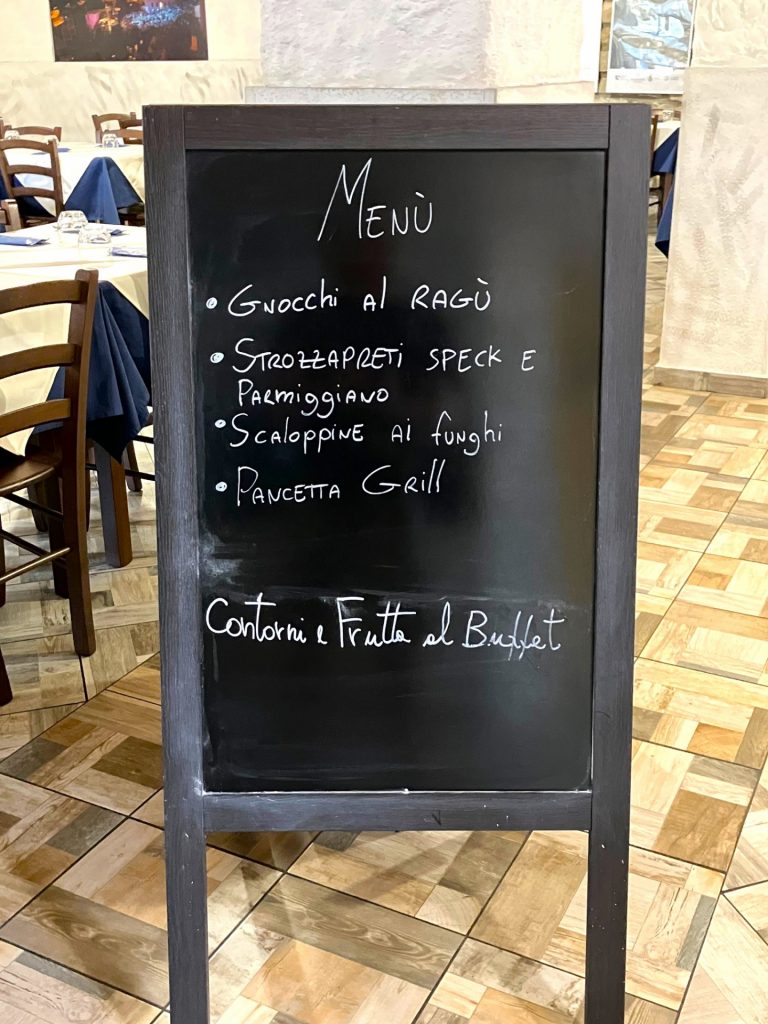 Menù
• Gnocchi al ragù
• Strozzapreti speck e
Parmiggiano
• Scaloppine ai funghi
• Pancetta Grill
Contorni e Frutta al Buffet